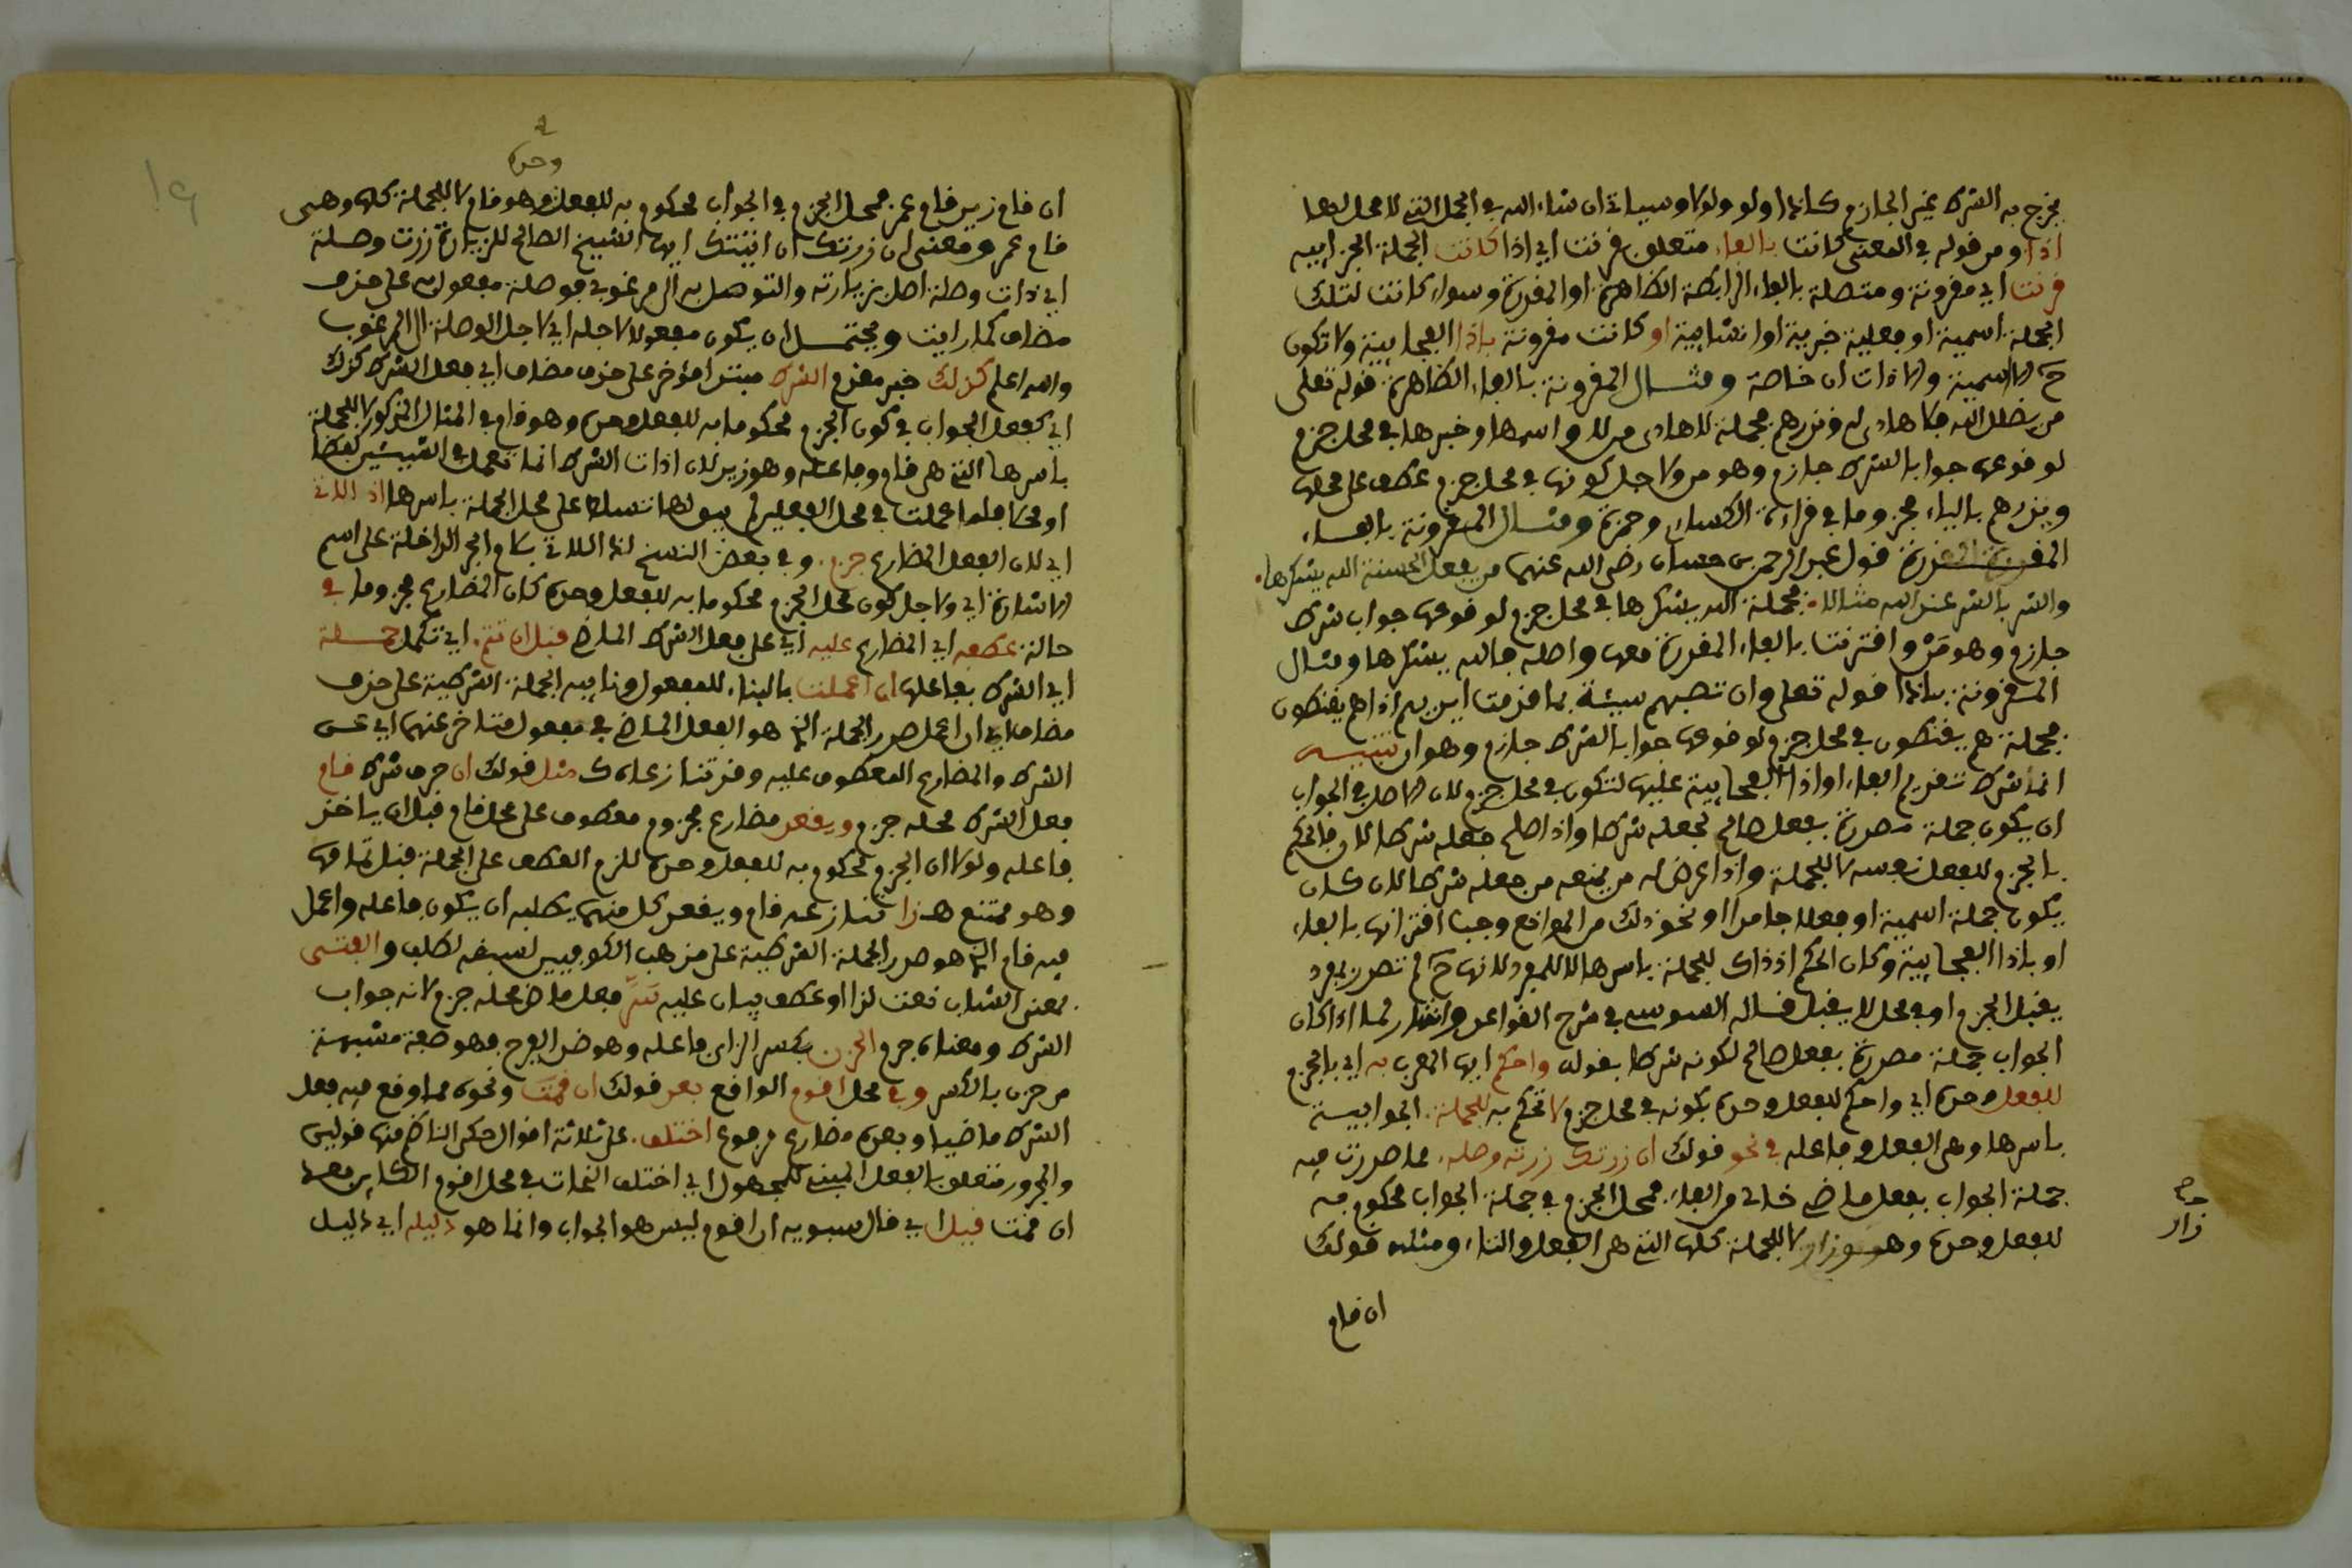 يخرج به الشرط غير الجازم كاذا ولو ولولا وسياتي ان شاء الله في الجمل التي لا محل لها
اذا ومر قوله في المعنى كانت بالفاء متعلق بقرنت اي اذا كانت الجملة الجوابية
قرنت اي مقرونة ومتصلة بالفاء الرابطة الظاهرة او المقدرة وسواء كانت لتلك
الجملة اسمية او فعلية خبرية او انشايية او كانت مقرونة باذا الفجايية ولا تكون
ح الا اسمية والاذات ان خاصة ومثال المقرونة بالفاء الظاهرة قوله تعلى
من يضلل الله فلا هادي له ونذرهم فجملة لا هادي من لا واسمها وخبرها في محل جزم
لوقوعها جوابا لشرط جازم وهو من ولاجل كونها في محل جزم عطف على محلها
ويذرهم بالياء مجزوما في قراءة الكساي وحمزة ومثال المقرونة بالفاء
المقدرة قول عبد الرحمن بن حسان رضي الله عنهما من يفعل الحسنة الله يشكرها
والشر بالشر عند الله مثلان فجملة الله يشكرها في محل جزم لوقوعها جواب شرط
جازم وهو من واقترنت بالفاء المقدرة معها واصله فالله يشكرها ومثال
المقرونة باذا قوله تعلى وان تصبهم سيئة بما قدمت ايديهم اذا هم يقنطون
فجملة هم يقنطون في محل جزم لوقوعها جوابا لشرط جازم وهو ان تنبيه
انما شرط تقديم الفاء او اذا الفجايية عليها لتكون في محل جزم لان الاصل في الجواب
ان يكون جملة مصدرة بفعل صالح لجعله شرطا واذا صلح جعله شرطا كان فالحكم
بالجزم للفعل نفسه لا للجملة واذا عرض له من يمنعه من جعله شرطا لان كان
يكون جملة اسمية او فعلا جامدا او نحو ذلك من الموانع وجب اقترانها بالفاء
او باذا الفجايية وكان الحكم اذ ذاك للجملة باسرها لا للمفرد لانها ح لم تصدر بمفرد
يقبل الجزم او في محل لا يقبل قاله السوسي في شرح القواعد واشار لما اذا كان
الجواب جملة مصدرة بفعل صالح لكونه شرطا بقوله واحكم ايها المعرب به اي بالجزم
للفعل وحده اي واحكم للفعل وحده بكونه في محل جزم لا تحكم به للجملة الجوابية
باسرها وهي الفعل وفاعله في نحو قولك ان زرتك زرته وصله مما صدرت فيه
جملة الجواب بفعل ماضي خالي من الفاء فمحل الجزم في جملة الجواب محكوم به
للفعل وحده وهو زار لا للجملة كلها التي هي الفعل والتاء ومثله قولك
زار
ان قام
وحده
ان قام زيد قام عمر فمحل الجزم في الجواب محكوم به للفعل وهو قام لا للجملة كلها وهي
قام عمر ومعنى ان زرتك ان اتيتك ايها الشيخ الصالح للزيارة زرت وصلة
اي ذات وصلة اصل بزيارته والتوصل به الى مرغوبي فوصلة مفعول به على حذف
مضاف كما رايت ويحتمل ان يكون مفعولا لاجله اي لاجل الوصلة الى المرغوب
والله اعلم كذلك خبر مقدم الشرط مبتدا مؤخر على حذف مضاف اي فعل الشرط كذلك
اي كفعل الجواب في كون الجزم محكوما به للفعل وحده وهو قام في المثال المذكور لا للجملة
باسرها التي هي قام وفاعله وهو زيد لان اذات الشرط انما تعمل في الشيئين لفظا
او محلا فلما عملت في محل الفعل لم يبق لها تسلط على محل الجملة باسرها اذ الاتي
اي لان الفعل المضارع جزم وفي بعض النسخ لذا اللاتي بلام الجر الداخلة على اسم
الاشارة اي ولاجل كون محل الجزم محكوما به للفعل وحده كان المضارع مجزوما في
حالة عطفه اي المضارع عليه اي على فعل الشرط الماضي قبل ان تتم اي تكمل جملة
اي الشرط بفاعلها ان اعملت بالبناء للمفعول ونايبه الجملة الشرطية على حذف
مضاف اي ان اعمل صدر الجملة الذي هو الفعل الماضي في مفعول متاخر عنهما اي عن
الشرط والمضارع المعطوف عليه وقد تنازعاه مثل قولك ان حرف شرط قام
فعل الشرط محله جزم ويقعد مضارع مجزوم معطوف على محل قام قبل ان ياخذ
فاعله ولولا ان الجزم محكوم به للفعل وحده للزم العطف على الجملة قبل تمامها
وهو ممتنع هذا تنازعه قام ويقعد كل منهما يطلبه ان يكون فاعله واعمل
فيه قام الذي هو صدر الجملة الشرطية على مذهب الكوفيين لسبقه لطلب والفتى
بمعنى الشاب نعت لذا او عطف بيان عليه سر فعل ماض محله جزم لانه جواب
الشرط ومعناه فرح الحزن بكسر الزاي فاعله وهو ضد الفرح فهو صفة مشبهة
من حزن بالكسر وفي محل اقوم الواقع بعد قولك ان قمت ونحوه مما وقع فيه فعل
الشرط ماضيا وبعده مضارع مرفوع اختلف على ثلاثة اقوال حكى الناظم منها قولين
والمجرور متعلق بالفعل المبني للمجهول اي اختلف النحات في محل اقوم الكاين بعد
ان قمت قيل اي قال سيبويه ان اقوم ليس هو الجواب وانما هو دليله اي دليل